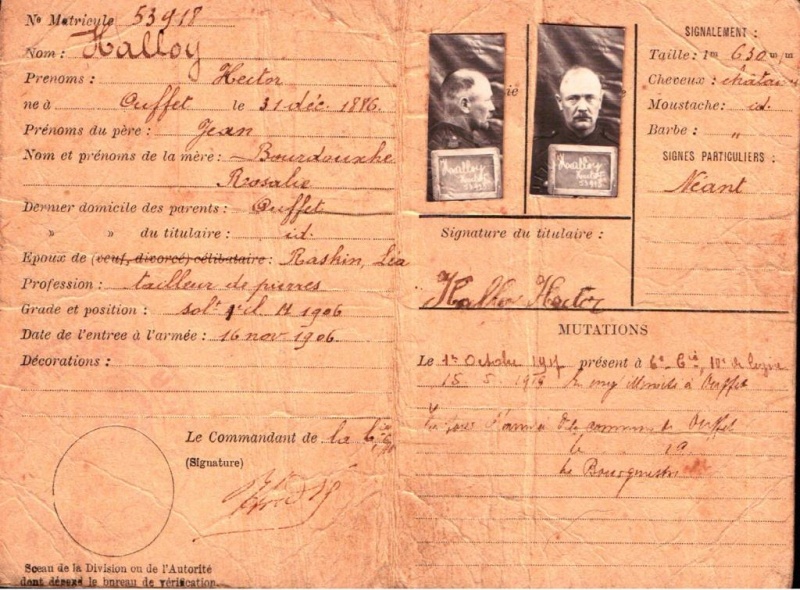 No Matricule 53918
Nom : Halloy
Prenoms : Hector
ne à Ouffet le 31 déc. 1886.
Prénoms du père : Jean
Nom et prénoms de la mère : Bourdouxhe
Rosalie
Dernier domicile des parents : Ouffet
» » du titulaire : id.
Epoux de (veuf, divorcé) célibataire : Raskin, Léa
Profession : tailleur de pierres
Grade et position : solt mil 1906
Date de l'entree à l'armée : 16 nov 1906.
Décorations :
Le Commandant de la
(Signature)
Sceau de la Division ou de l'Autorité
dont dépend le bureau de vérification.
Halloy
Hector
53918
Halloy
Hector
53918
Signature du titulaire :
Halloy Hector
SIGNALEMENT :
Taille : 1m 630 m/m
Cheveux : châtains
Moustache : id.
Barbe : "
SIGNES PARTICULIERS :
Néant
MUTATIONS
Le 1er Octobre 1917 présent à 6e Cie, 10e de ligne
15 5 1919 En congé illimité à Ouffet
la commune de Ouffet
le 19
Le Bourgmestre